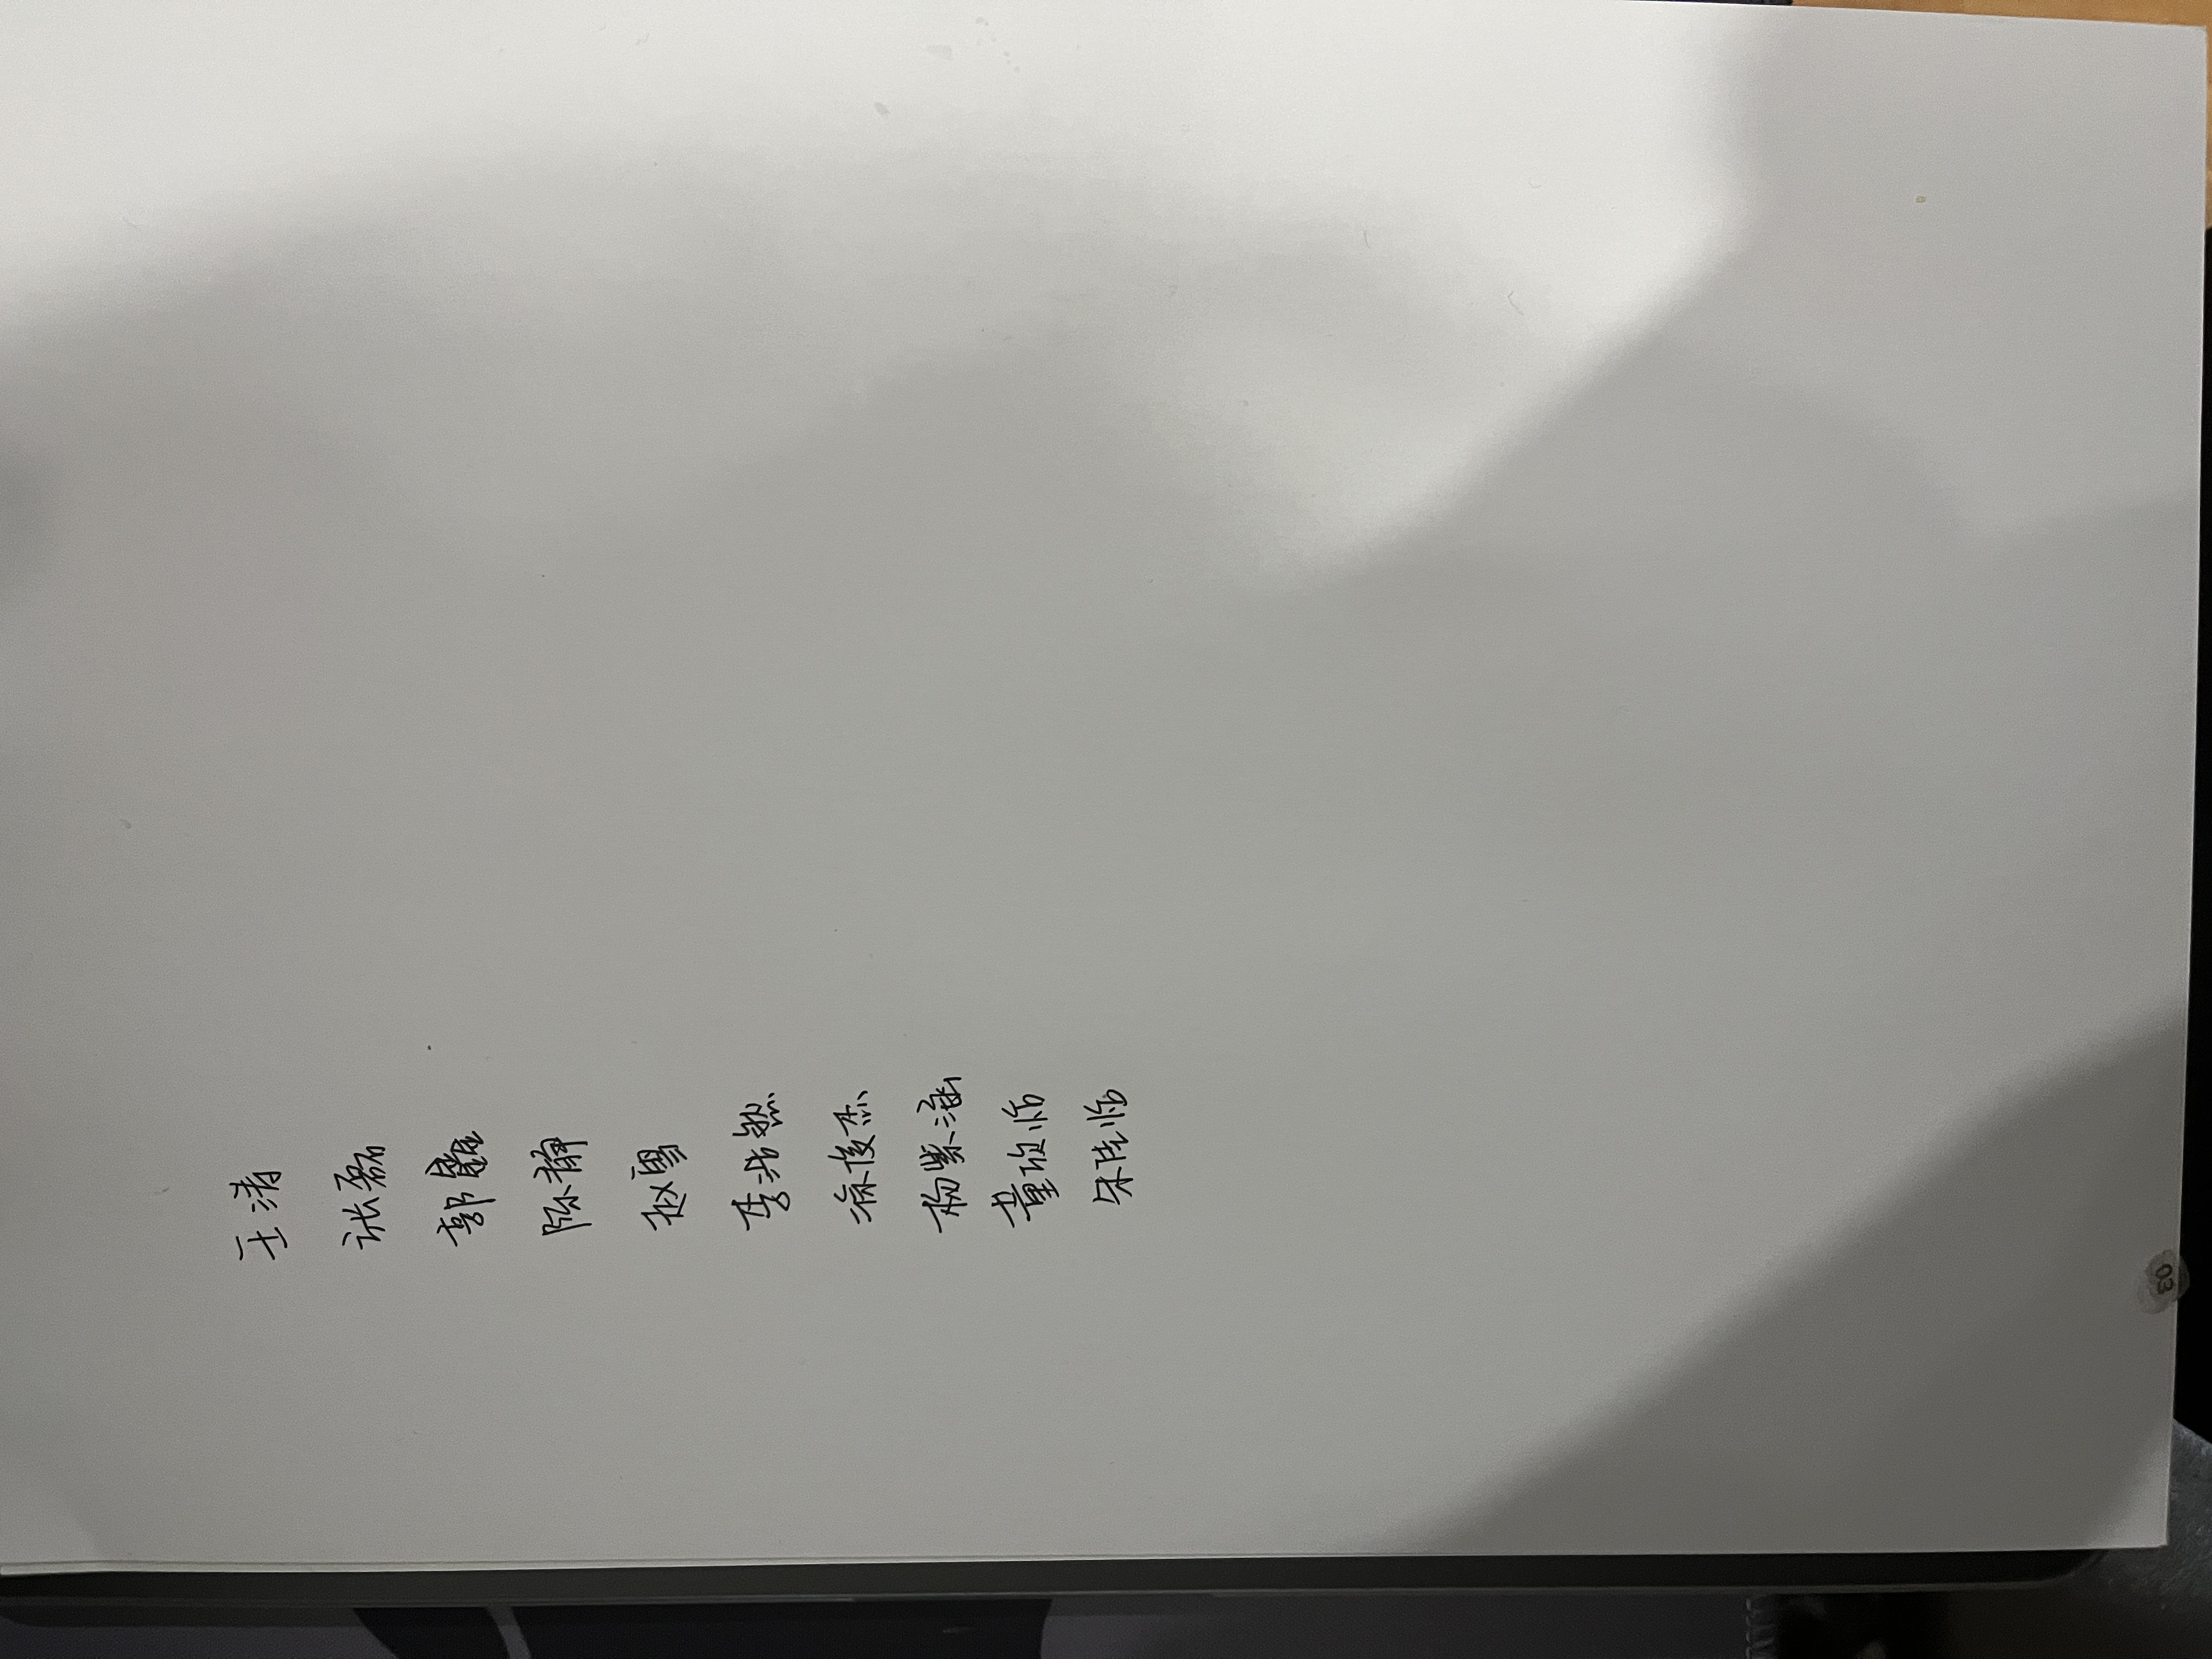 王涛
张磊
郭鑫
陈静
赵雪
李浩然
徐俊杰
杨紫涵
董欣怡
朱佳怡
03